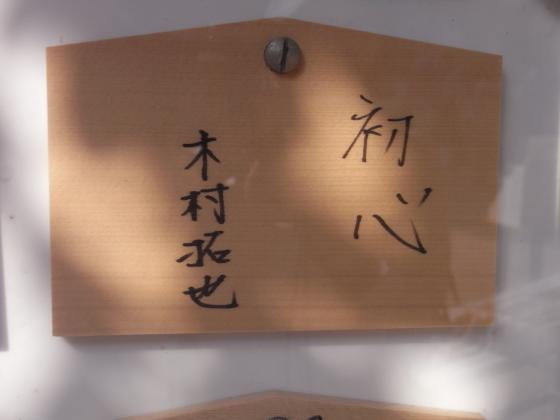 初心
木村拓也